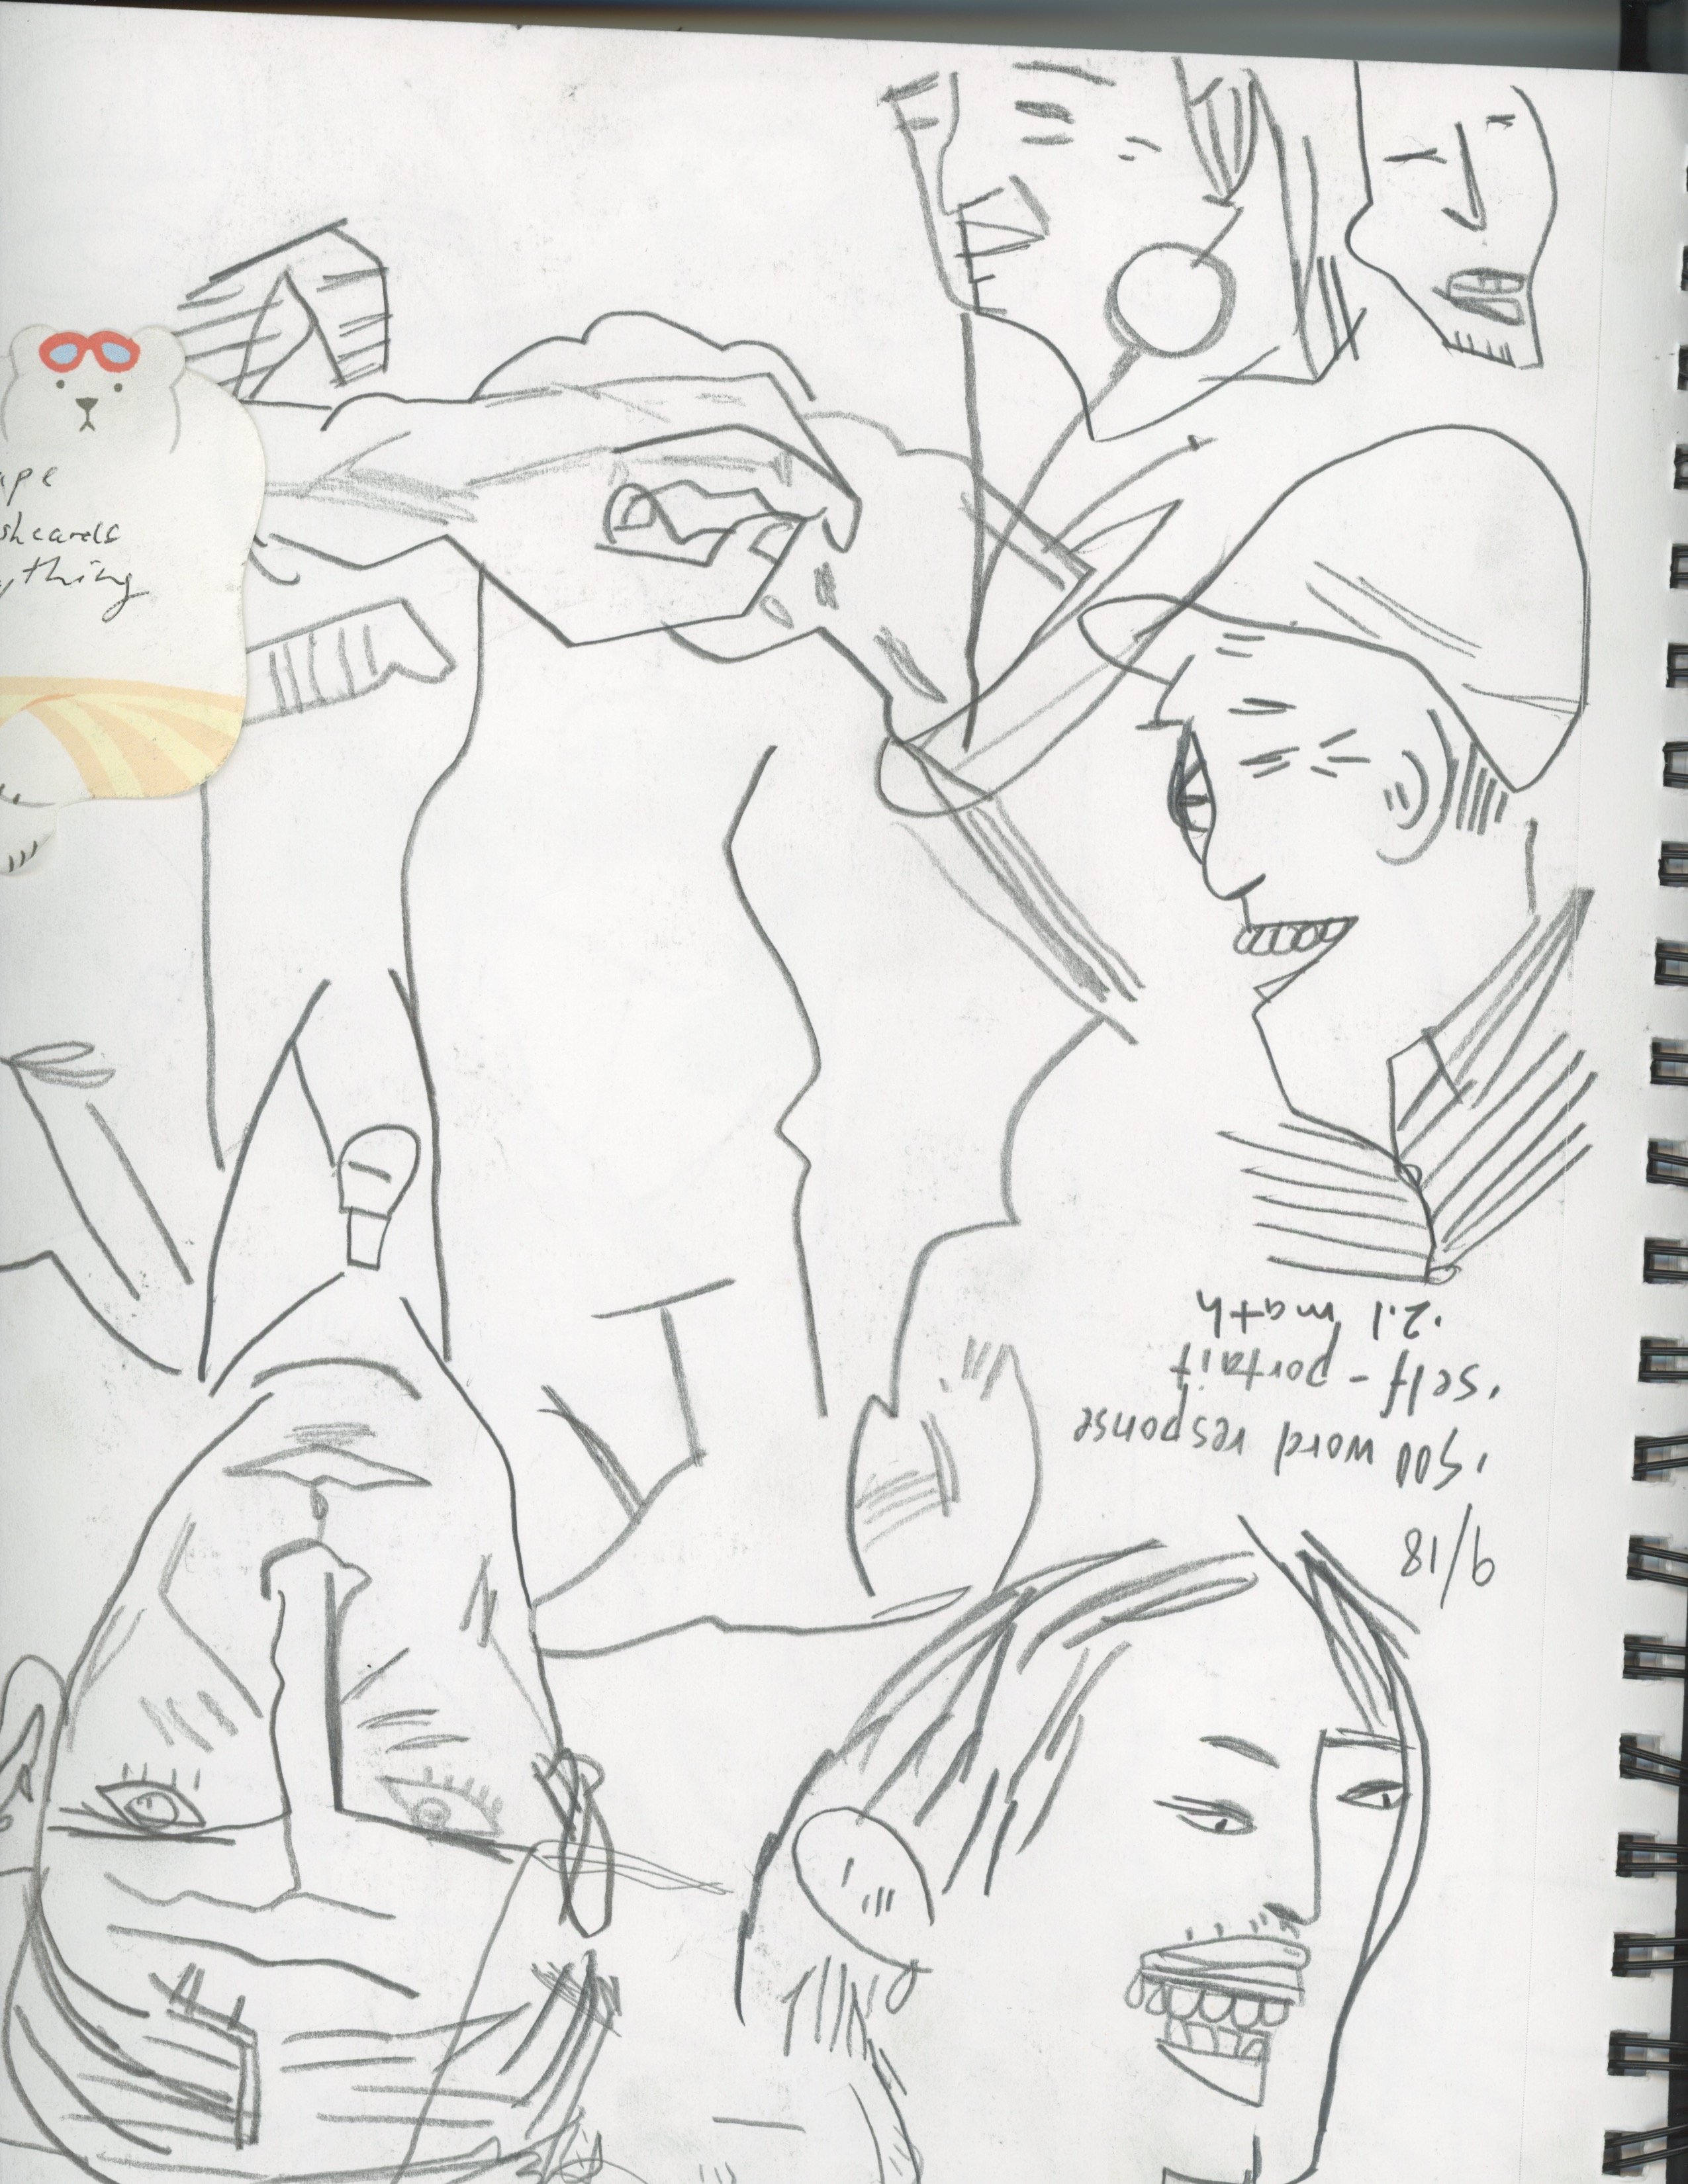 ape
shcards
ything
9/18
· 500 word response
· self-portait
· 2.1 math